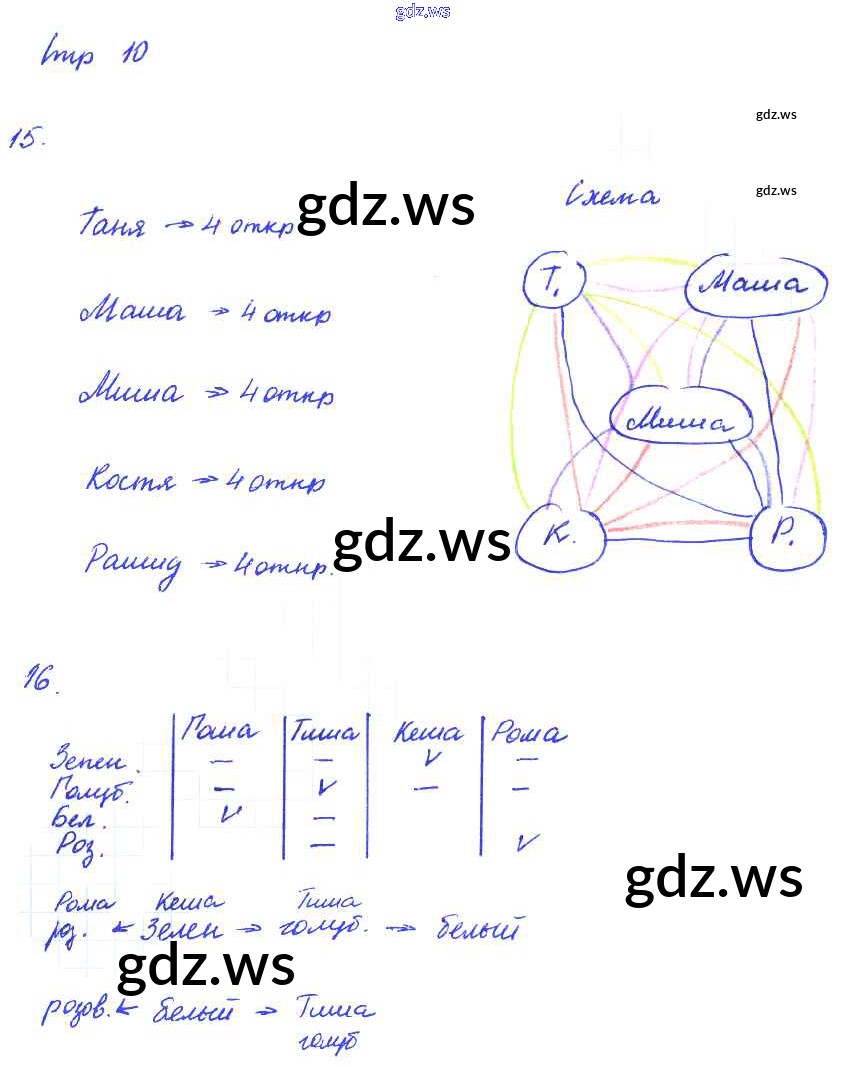 gdz.ws
Стр 10
gdz.ws
15.
gdz.ws
Схема
gdz.ws
Таня → 4 откр
Т.
Маша
Маша → 4 откр
Миша → 4 откр
Миша
Костя → 4 откр
gdz.ws
К.
Р.
Рашид → 4 откр.
16.
Гоша Тиша Кеша Рома
Зелен. — — V —
Голуб. — V — —
Бел. V —
Роз. — V
gdz.ws
Рома Кеша Тиша
роз. ← Зелен → голуб. → белый
gdz.ws
розов. ← белый → Тиша
голуб